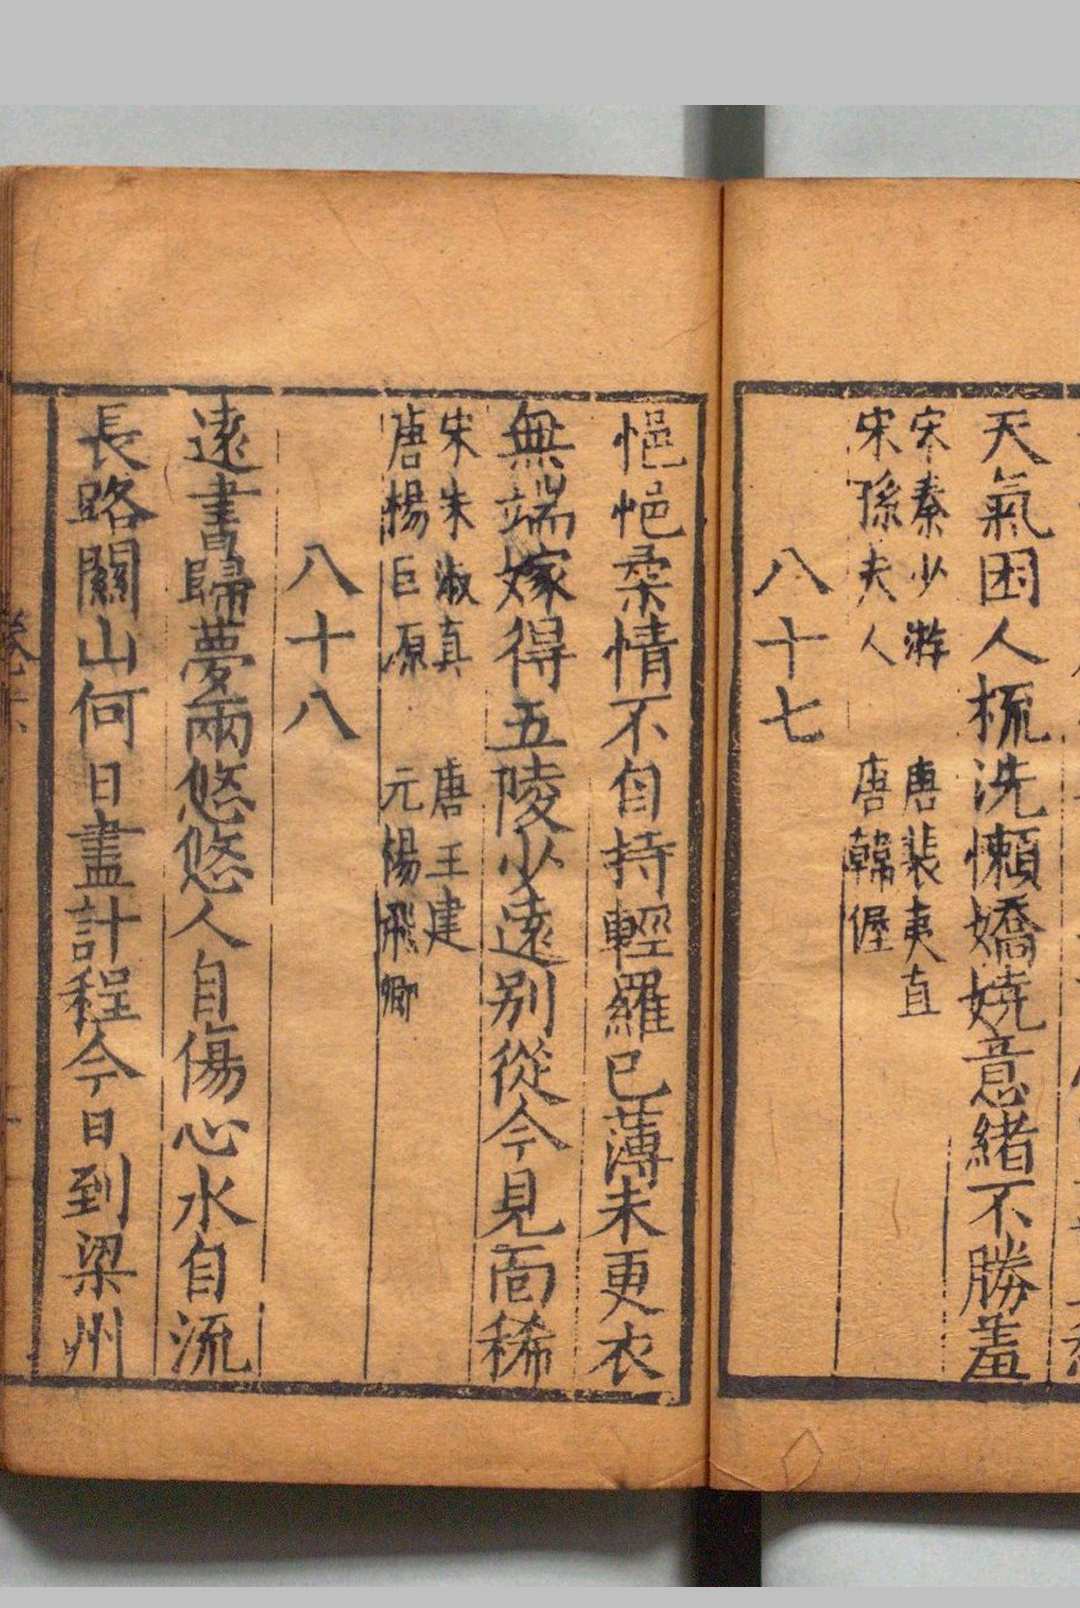 天氣困人梳洗懶嬌嬈意緒不勝羞
宋秦少游　唐裴夷直
宋孫夫人　唐韓偓
八十七
悒悒柔情不自持輕羅已薄未更衣
無端嫁得五陵少遠別從今見面稀
宋朱淑真　唐王建
唐楊巨源　元楊飛卿
八十八
遠書歸夢兩悠悠人自傷心水自流
長路關山何日盡計程今日到梁州
卷六